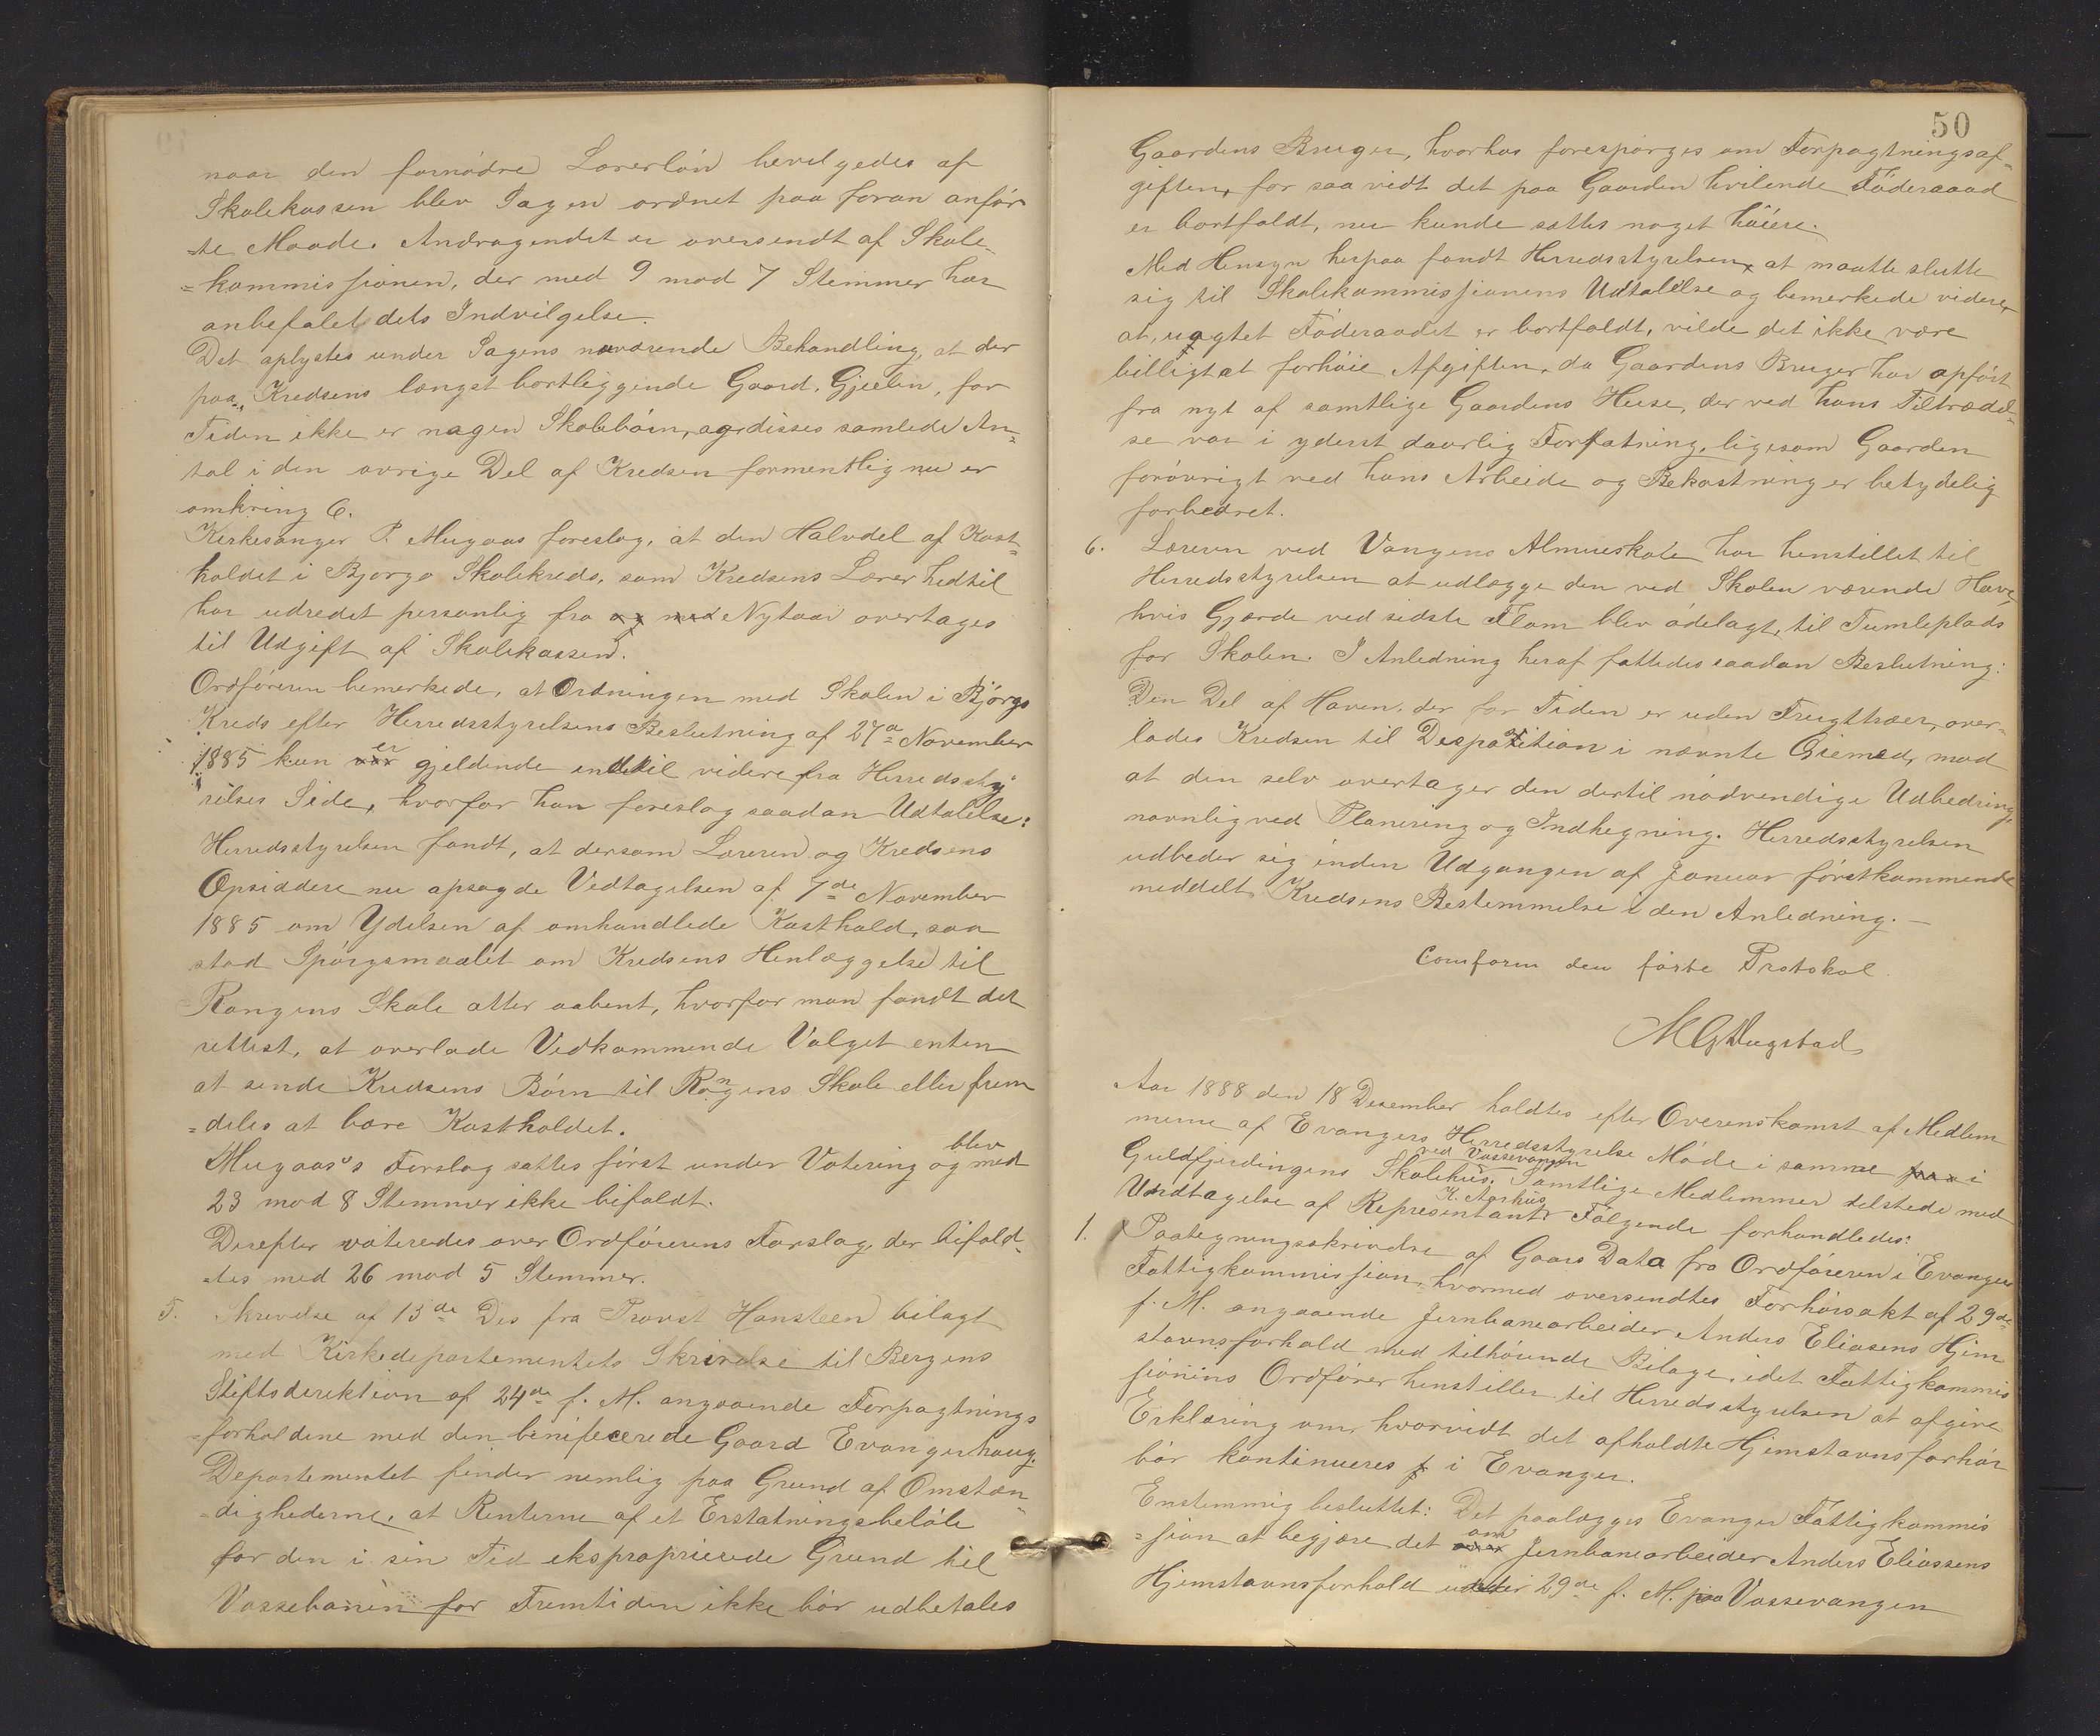 naar den fornødne Lærerløn bevilgedes af
Skolekassen blev Sagen ordnet paa foran anfør-
-te Maade. Andragendet er oversendt af Skole-
=kommissionen, der med 9 mod 7 Stemmer har
anbefalet dets Indvilgelse.
Det oplystes under Sagens nærværende Behandling, at der
paa Kredsens længst bortliggende Gaard, Gjelen, for
Tiden ikke er nogen Skolebørn, og disses samlede An-
tal i den øvrige Del af Kredsen formentlig nu er
omkring 6.
Kirkesanger P. Mugaas foreslog, at den Halvdel af Kost-
holdet i Bjørgo Skolekreds, som Kredsens Lærer hedtil
har udredet personlig fra og med Nytaar overtages
til Udgift af Skolekassen.
Ordføreren bemerkede, at Ordningen med Skolen i Bjørgo
Kreds efter Herredsstyrelsens Beslutning af 27de November
1885 kun er gjeldende indtil videre fra Herredssty-
relses Side, hvorfor han foreslog saadan Udtalelse:
Herredsstyrelsen fandt, at dersom Læreren og Kredsens
Opsiddere nu opsagde Vedtagelsen af 7de November
1885 om Ydelsen af omhandlede Kosthold, saa
stod Spørgsmaalet om Kredsens Henlæggelse til
Rongens Skole atter aabent, hvorfor man fandt det
rettest, at overlade Vedkommende Valget enten
at sende Kredsens Børn til Rongens Skole eller frem
=deles at bære Kostholdet.
Mugaas's Forslag sattes først under Votering og blev med
23 mod 8 Stemmer ikke bifaldt.
Derefter voteredes over Ordførerens Forslag, der bifald-
-tes med 26 mod 5 Stemmer.
5. Skrivelse af 13de Des fra Provst Hansteen bilagt
med Kirkedepartementets Skrivelse til Bergens
Stiftsdirektion af 24de f. M. angaaende Forpagtnings
-forholdene med den benificerede Gaard Evangerhaug.
Departementet finder nemlig paa Grund af Omstæn-
-dighederne, at Renterne af et Erstatningsbeløb
for den i sin Tid eksproprierede Grund til
Vossebanen for Fremtiden ikke bør udbetales
50
Gaardens Bruger, hvorhos forespørges om Forpagtningsaf-
giften, for saa vidt det paa Gaarden hvilende Føderaad
er bortfaldt, nu kunde sættes noget høiere.
Med Hensyn herpaa fandt Herredsstyrelsen, at maatte slutte
sig til Skolekommissionens Udtalelse og bemerkede videre,
at, uagtet Føderaadet er bortfaldt, vilde det ikke være
billigt at forhøie Afgiften, da Gaardens Bruger har opført
fra nyt af samtlige Gaardens Huse, der ved hans Tiltrædel-
se var i yderst daarlig Forfatning, ligesom Gaarden
forøvrigt ved hans Arbeide og Bekostning er betydelig
forbedret.
6. Læreren ved Vangens Almueskole har henstillet til
Herredsstyrelsen at udlægge den ved Skolen værende Have,
hvis Gjærde ved sidste Flom blev ødelagt, til Tumleplads
for Skolen. I Anledning heraf fattedes saadan Beslutning:
Den Del af Haven, der for Tiden er uden Frugttræer, over-
lades Kredsen til Desposition i nævnte Øiemed, mod
at den selv overtager den dertil nødvendige Udbedring,
navnlig ved Planering og Indhegning. Herredsstyrelsen
udbeder sig inden Udgangen af Januar førstkommende
meddelt Kredsens Bestemmelse i den Anledning.—
Comform den førte Protokol
M G Mugstad
Aar 1888 den 18 Desember holdtes efter Overenskomst af Medlem
merne af Evangers Herredsstyrelse Møde i samme i
Guldfjerdingens Skolehus ved Vossevangen. Samtlige Medlemmer tilstede med
Undtagelse af Representant K. Aarhus Følgende forhandledes:
1. Paategningsskrivelse af Gaars Data fra Ordføreren i Evangers
Fattigkommission, hvormed oversendtes Forhørsakt af 29de
f. M. angaaende Jernbanearbeider Anders Eliasens Hjem
stavnsforhold med tilhørende Bilage, idet Fattigkommis
sionens Ordfører henstiller til Herredsstyrelsen at afgive
Erklæring om, hvorvidt det afholdte Hjemstavnsforhør
bør kontinueres i Evanger.
Enstemmig besluttet: Det paalægges Evanger Fattigkommis
=sion at begjære det om Jernbanearbeider Anders Eliassens
Hjemstavnsforhold under 29de f. M. paa Vossevangen